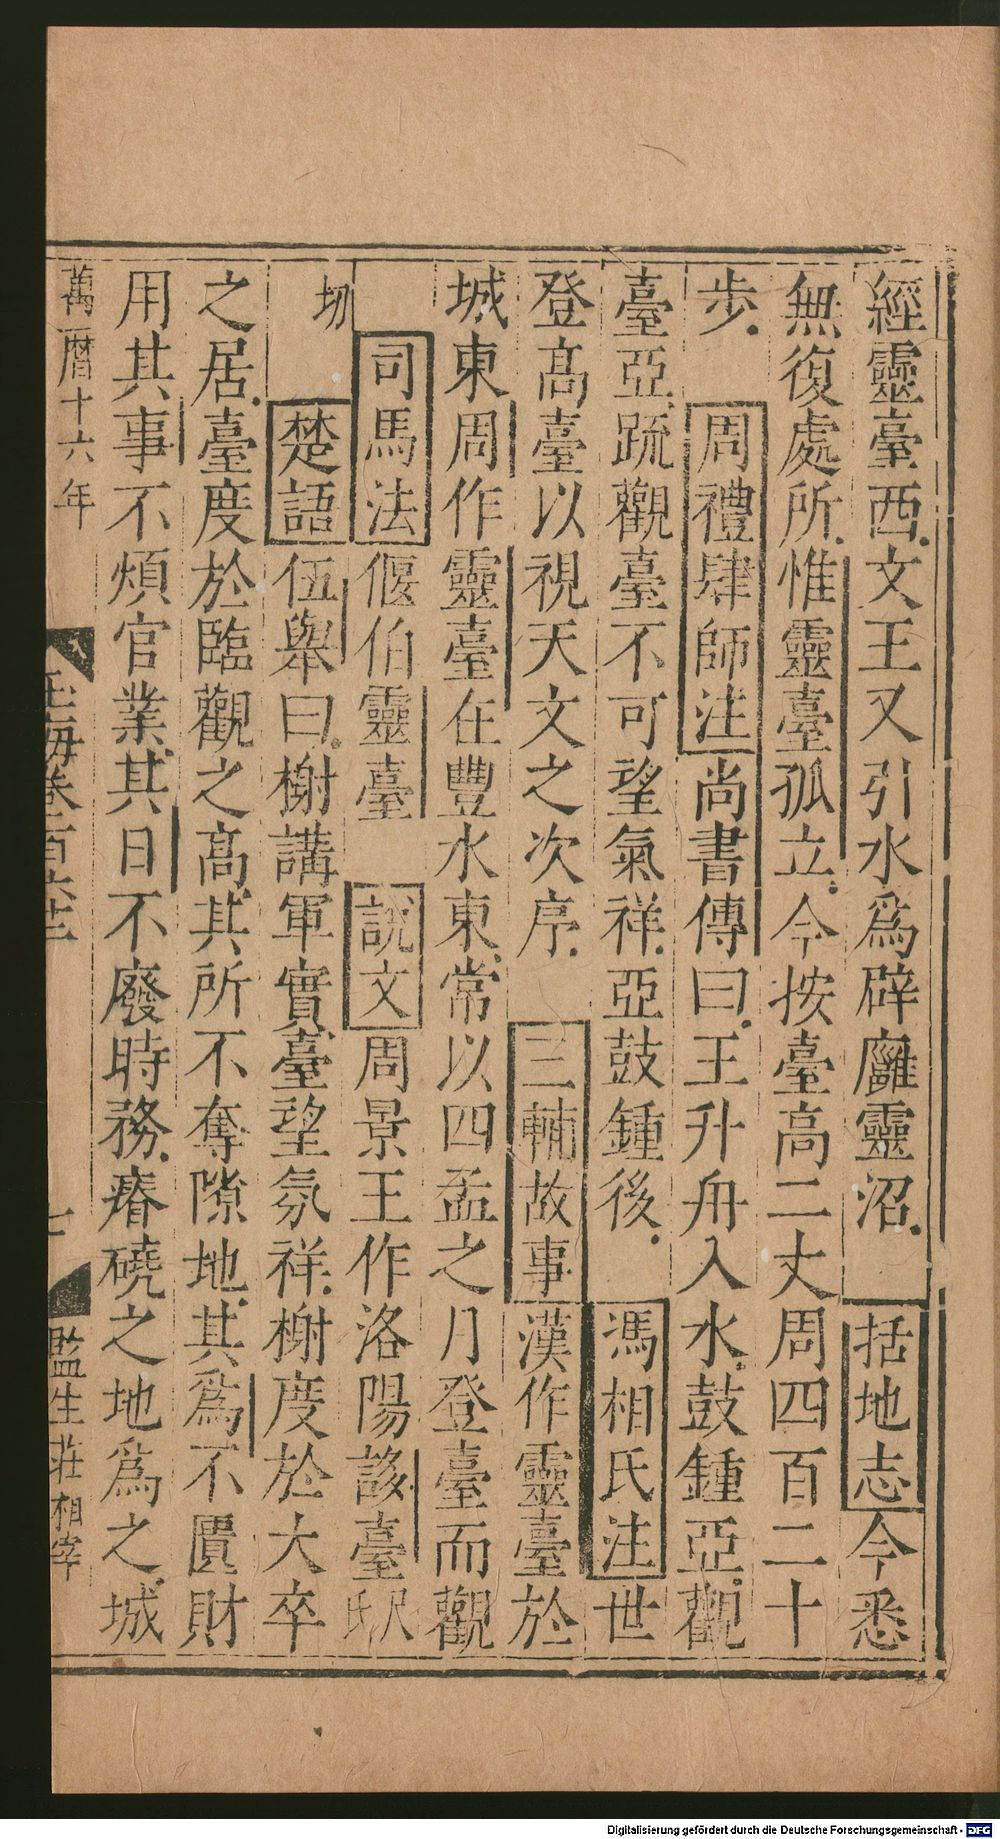 經靈臺西文王又引水爲辟廱靈沼括地志今悉
無復處所惟靈臺孤立今按臺高二丈周四百二十
步周禮肆師注尚書傳曰王升舟入水鼓鍾亞觀
臺亞䟽觀臺不可望氣祥亞鼓鍾後馮相氏注世
登高臺以視天文之次序三輔故事漢作靈臺於
城東周作靈臺在豐水東常以四孟之月登臺而觀
司馬法偃伯靈臺說文周景王作洛陽䛄臺尺氏
切楚語伍舉曰榭講軍實臺望氛祥榭度於大卒
之居臺度於臨觀之高其所不奪隙地其爲不匱財
用其事不煩官業其日不廢時務瘠磽之地爲之城
萬曆十六年
玉海卷百六十二
七
監生莊相孝
Digitalisierung gefördert durch die Deutsche Forschungsgemeinschaft - DFG